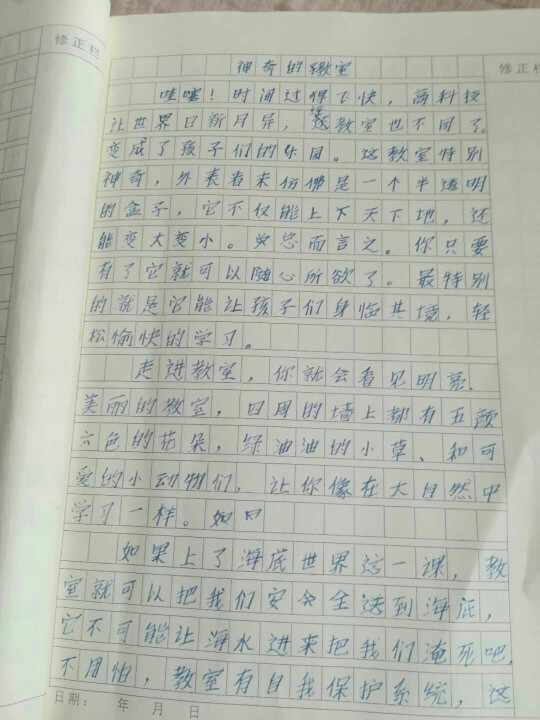 修正栏
修正栏
神奇的教室
哇噻！时间过得飞快，高科技
让世界日新月异，连教室也不同了。
变成了孩子们的乐园。这教室特别
神奇，外表看来仿佛是一个半透明
的盒子，它不仅能上下天下地，还
能变大变小。总而言之。你只要
有了它就可以随心所欲了。最特别
的就是它能让孩子们身临其境，轻
松愉快的学习。
走进教室，你就会看见明亮、
美丽的教室，四周的墙上都有五颜
六色的花朵，绿油油的小草、和可
爱的小动物们，让你像在大自然中
学习一样。如
如果上了海底世界这一课，教
室就可以把我们安全送到海底，
它不可能让海水进来把我们淹死吧，
不用怕，教室有自我保护系统，这
日期： 年 月 日